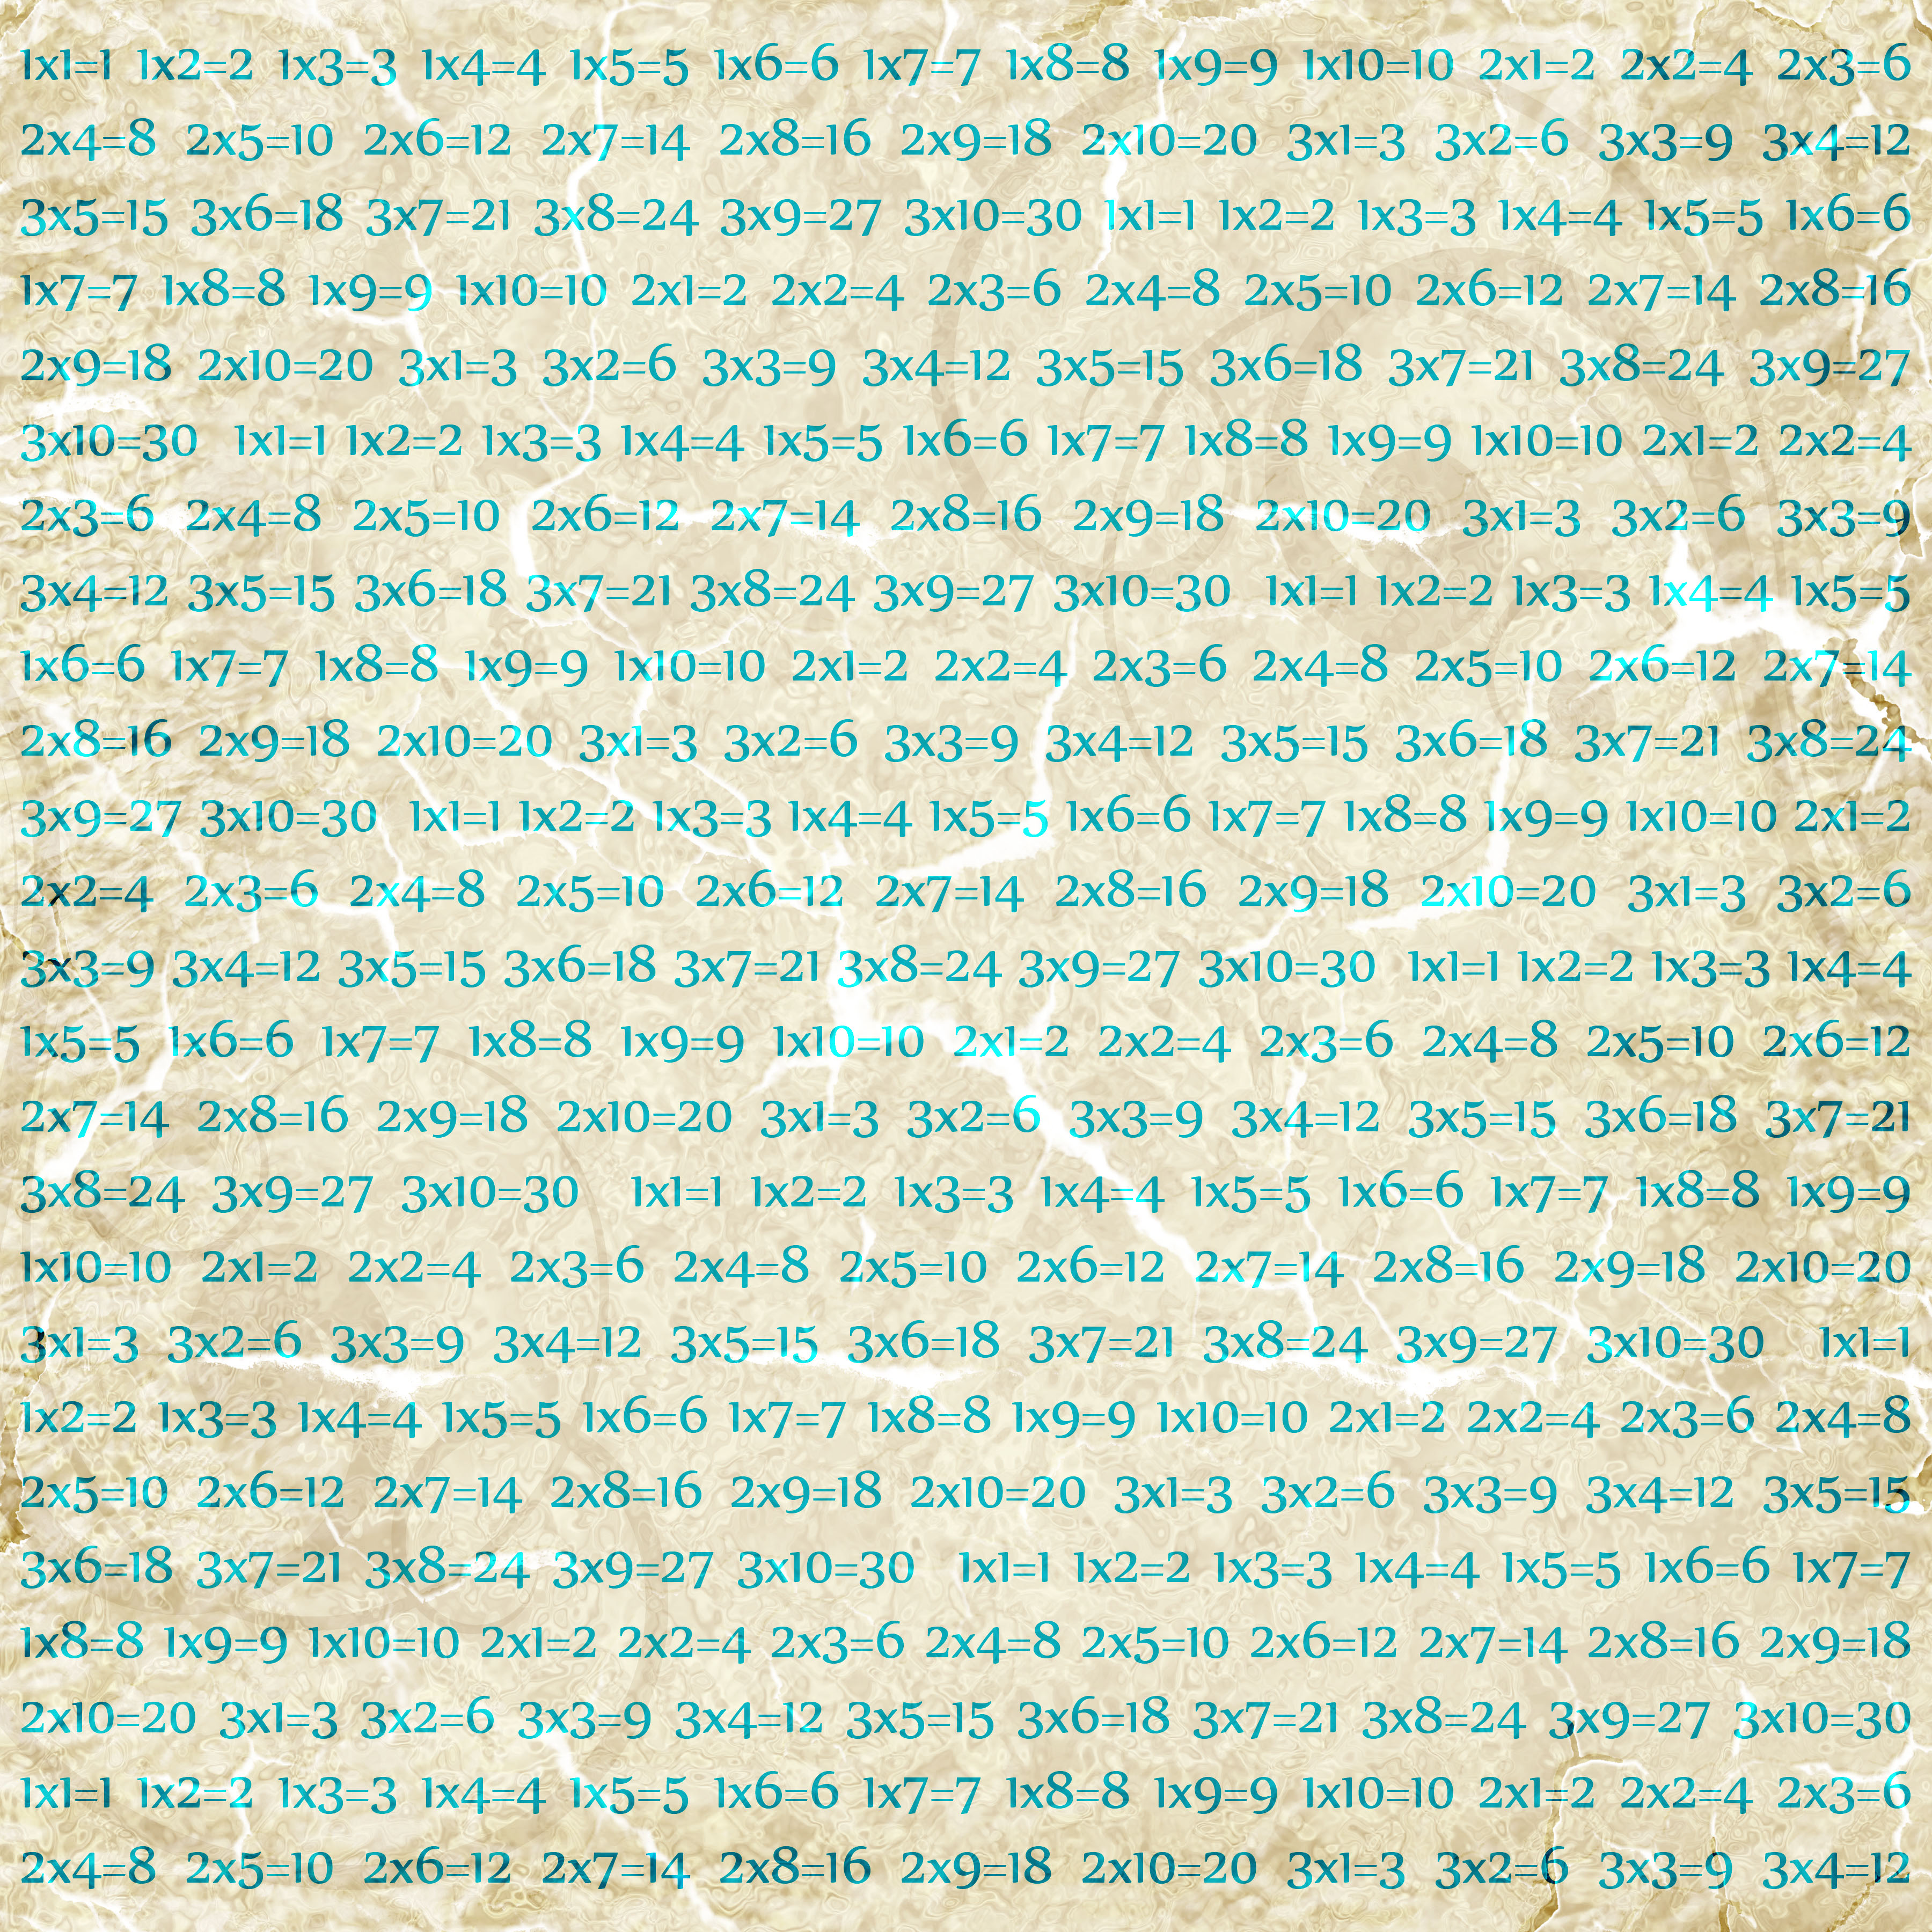 1x1=1 1x2=2 1x3=3 1x4=4 1x5=5 1x6=6 1x7=7 1x8=8 1x9=9 1x10=10 2x1=2 2x2=4 2x3=6
2x4=8 2x5=10 2x6=12 2x7=14 2x8=16 2x9=18 2x10=20 3x1=3 3x2=6 3x3=9 3x4=12
3x5=15 3x6=18 3x7=21 3x8=24 3x9=27 3x10=30 1x1=1 1x2=2 1x3=3 1x4=4 1x5=5 1x6=6
1x7=7 1x8=8 1x9=9 1x10=10 2x1=2 2x2=4 2x3=6 2x4=8 2x5=10 2x6=12 2x7=14 2x8=16
2x9=18 2x10=20 3x1=3 3x2=6 3x3=9 3x4=12 3x5=15 3x6=18 3x7=21 3x8=24 3x9=27
3x10=30 1x1=1 1x2=2 1x3=3 1x4=4 1x5=5 1x6=6 1x7=7 1x8=8 1x9=9 1x10=10 2x1=2 2x2=4
2x3=6 2x4=8 2x5=10 2x6=12 2x7=14 2x8=16 2x9=18 2x10=20 3x1=3 3x2=6 3x3=9
3x4=12 3x5=15 3x6=18 3x7=21 3x8=24 3x9=27 3x10=30 1x1=1 1x2=2 1x3=3 1x4=4 1x5=5
1x6=6 1x7=7 1x8=8 1x9=9 1x10=10 2x1=2 2x2=4 2x3=6 2x4=8 2x5=10 2x6=12 2x7=14
2x8=16 2x9=18 2x10=20 3x1=3 3x2=6 3x3=9 3x4=12 3x5=15 3x6=18 3x7=21 3x8=24
3x9=27 3x10=30 1x1=1 1x2=2 1x3=3 1x4=4 1x5=5 1x6=6 1x7=7 1x8=8 1x9=9 1x10=10 2x1=2
2x2=4 2x3=6 2x4=8 2x5=10 2x6=12 2x7=14 2x8=16 2x9=18 2x10=20 3x1=3 3x2=6
3x3=9 3x4=12 3x5=15 3x6=18 3x7=21 3x8=24 3x9=27 3x10=30 1x1=1 1x2=2 1x3=3 1x4=4
1x5=5 1x6=6 1x7=7 1x8=8 1x9=9 1x10=10 2x1=2 2x2=4 2x3=6 2x4=8 2x5=10 2x6=12
2x7=14 2x8=16 2x9=18 2x10=20 3x1=3 3x2=6 3x3=9 3x4=12 3x5=15 3x6=18 3x7=21
3x8=24 3x9=27 3x10=30 1x1=1 1x2=2 1x3=3 1x4=4 1x5=5 1x6=6 1x7=7 1x8=8 1x9=9
1x10=10 2x1=2 2x2=4 2x3=6 2x4=8 2x5=10 2x6=12 2x7=14 2x8=16 2x9=18 2x10=20
3x1=3 3x2=6 3x3=9 3x4=12 3x5=15 3x6=18 3x7=21 3x8=24 3x9=27 3x10=30 1x1=1
1x2=2 1x3=3 1x4=4 1x5=5 1x6=6 1x7=7 1x8=8 1x9=9 1x10=10 2x1=2 2x2=4 2x3=6 2x4=8
2x5=10 2x6=12 2x7=14 2x8=16 2x9=18 2x10=20 3x1=3 3x2=6 3x3=9 3x4=12 3x5=15
3x6=18 3x7=21 3x8=24 3x9=27 3x10=30 1x1=1 1x2=2 1x3=3 1x4=4 1x5=5 1x6=6 1x7=7
1x8=8 1x9=9 1x10=10 2x1=2 2x2=4 2x3=6 2x4=8 2x5=10 2x6=12 2x7=14 2x8=16 2x9=18
2x10=20 3x1=3 3x2=6 3x3=9 3x4=12 3x5=15 3x6=18 3x7=21 3x8=24 3x9=27 3x10=30
1x1=1 1x2=2 1x3=3 1x4=4 1x5=5 1x6=6 1x7=7 1x8=8 1x9=9 1x10=10 2x1=2 2x2=4 2x3=6
2x4=8 2x5=10 2x6=12 2x7=14 2x8=16 2x9=18 2x10=20 3x1=3 3x2=6 3x3=9 3x4=12